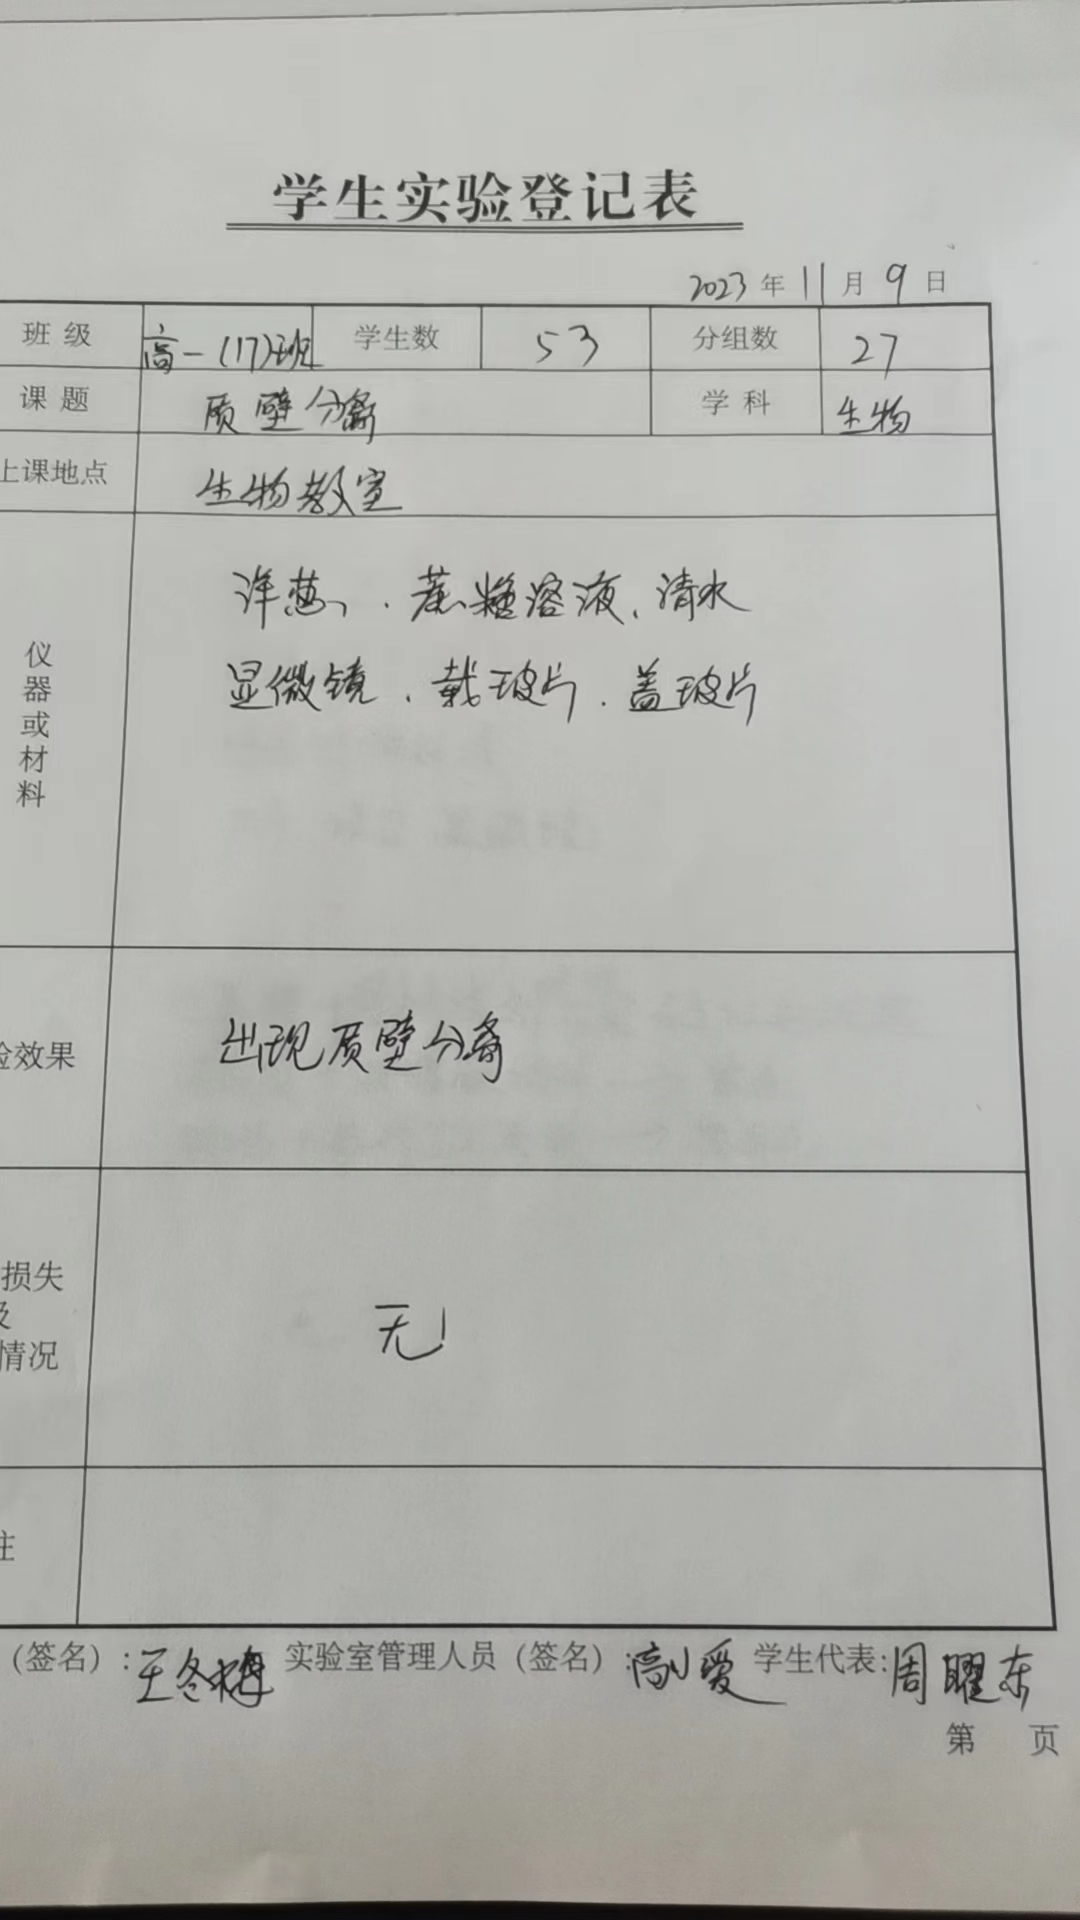 学生实验登记表
2023年11月9日
班级 高一(17)班 学生数 53 分组数 27
课题 质壁分离 学科 生物
上课地点 生物教室
仪器或材料
洋葱、蔗糖溶液、清水
显微镜、载玻片、盖玻片
验效果 出现质壁分离
损失
及
情况
无!
注
(签名):王冬梅 实验室管理人员(签名): 学生代表:周曜东
第 页